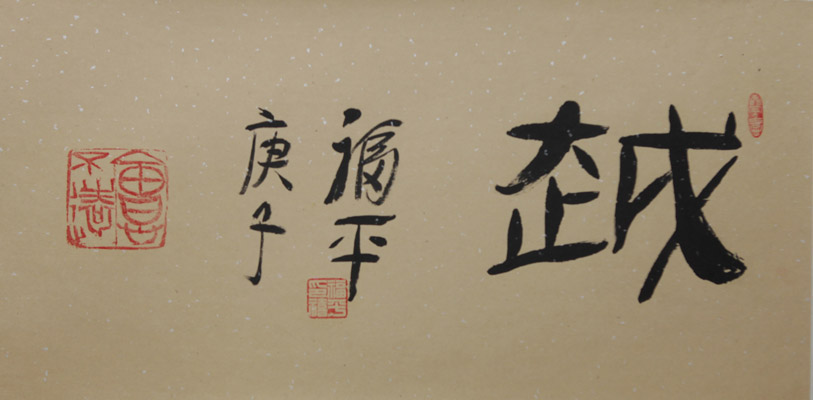 越
福平
庚子